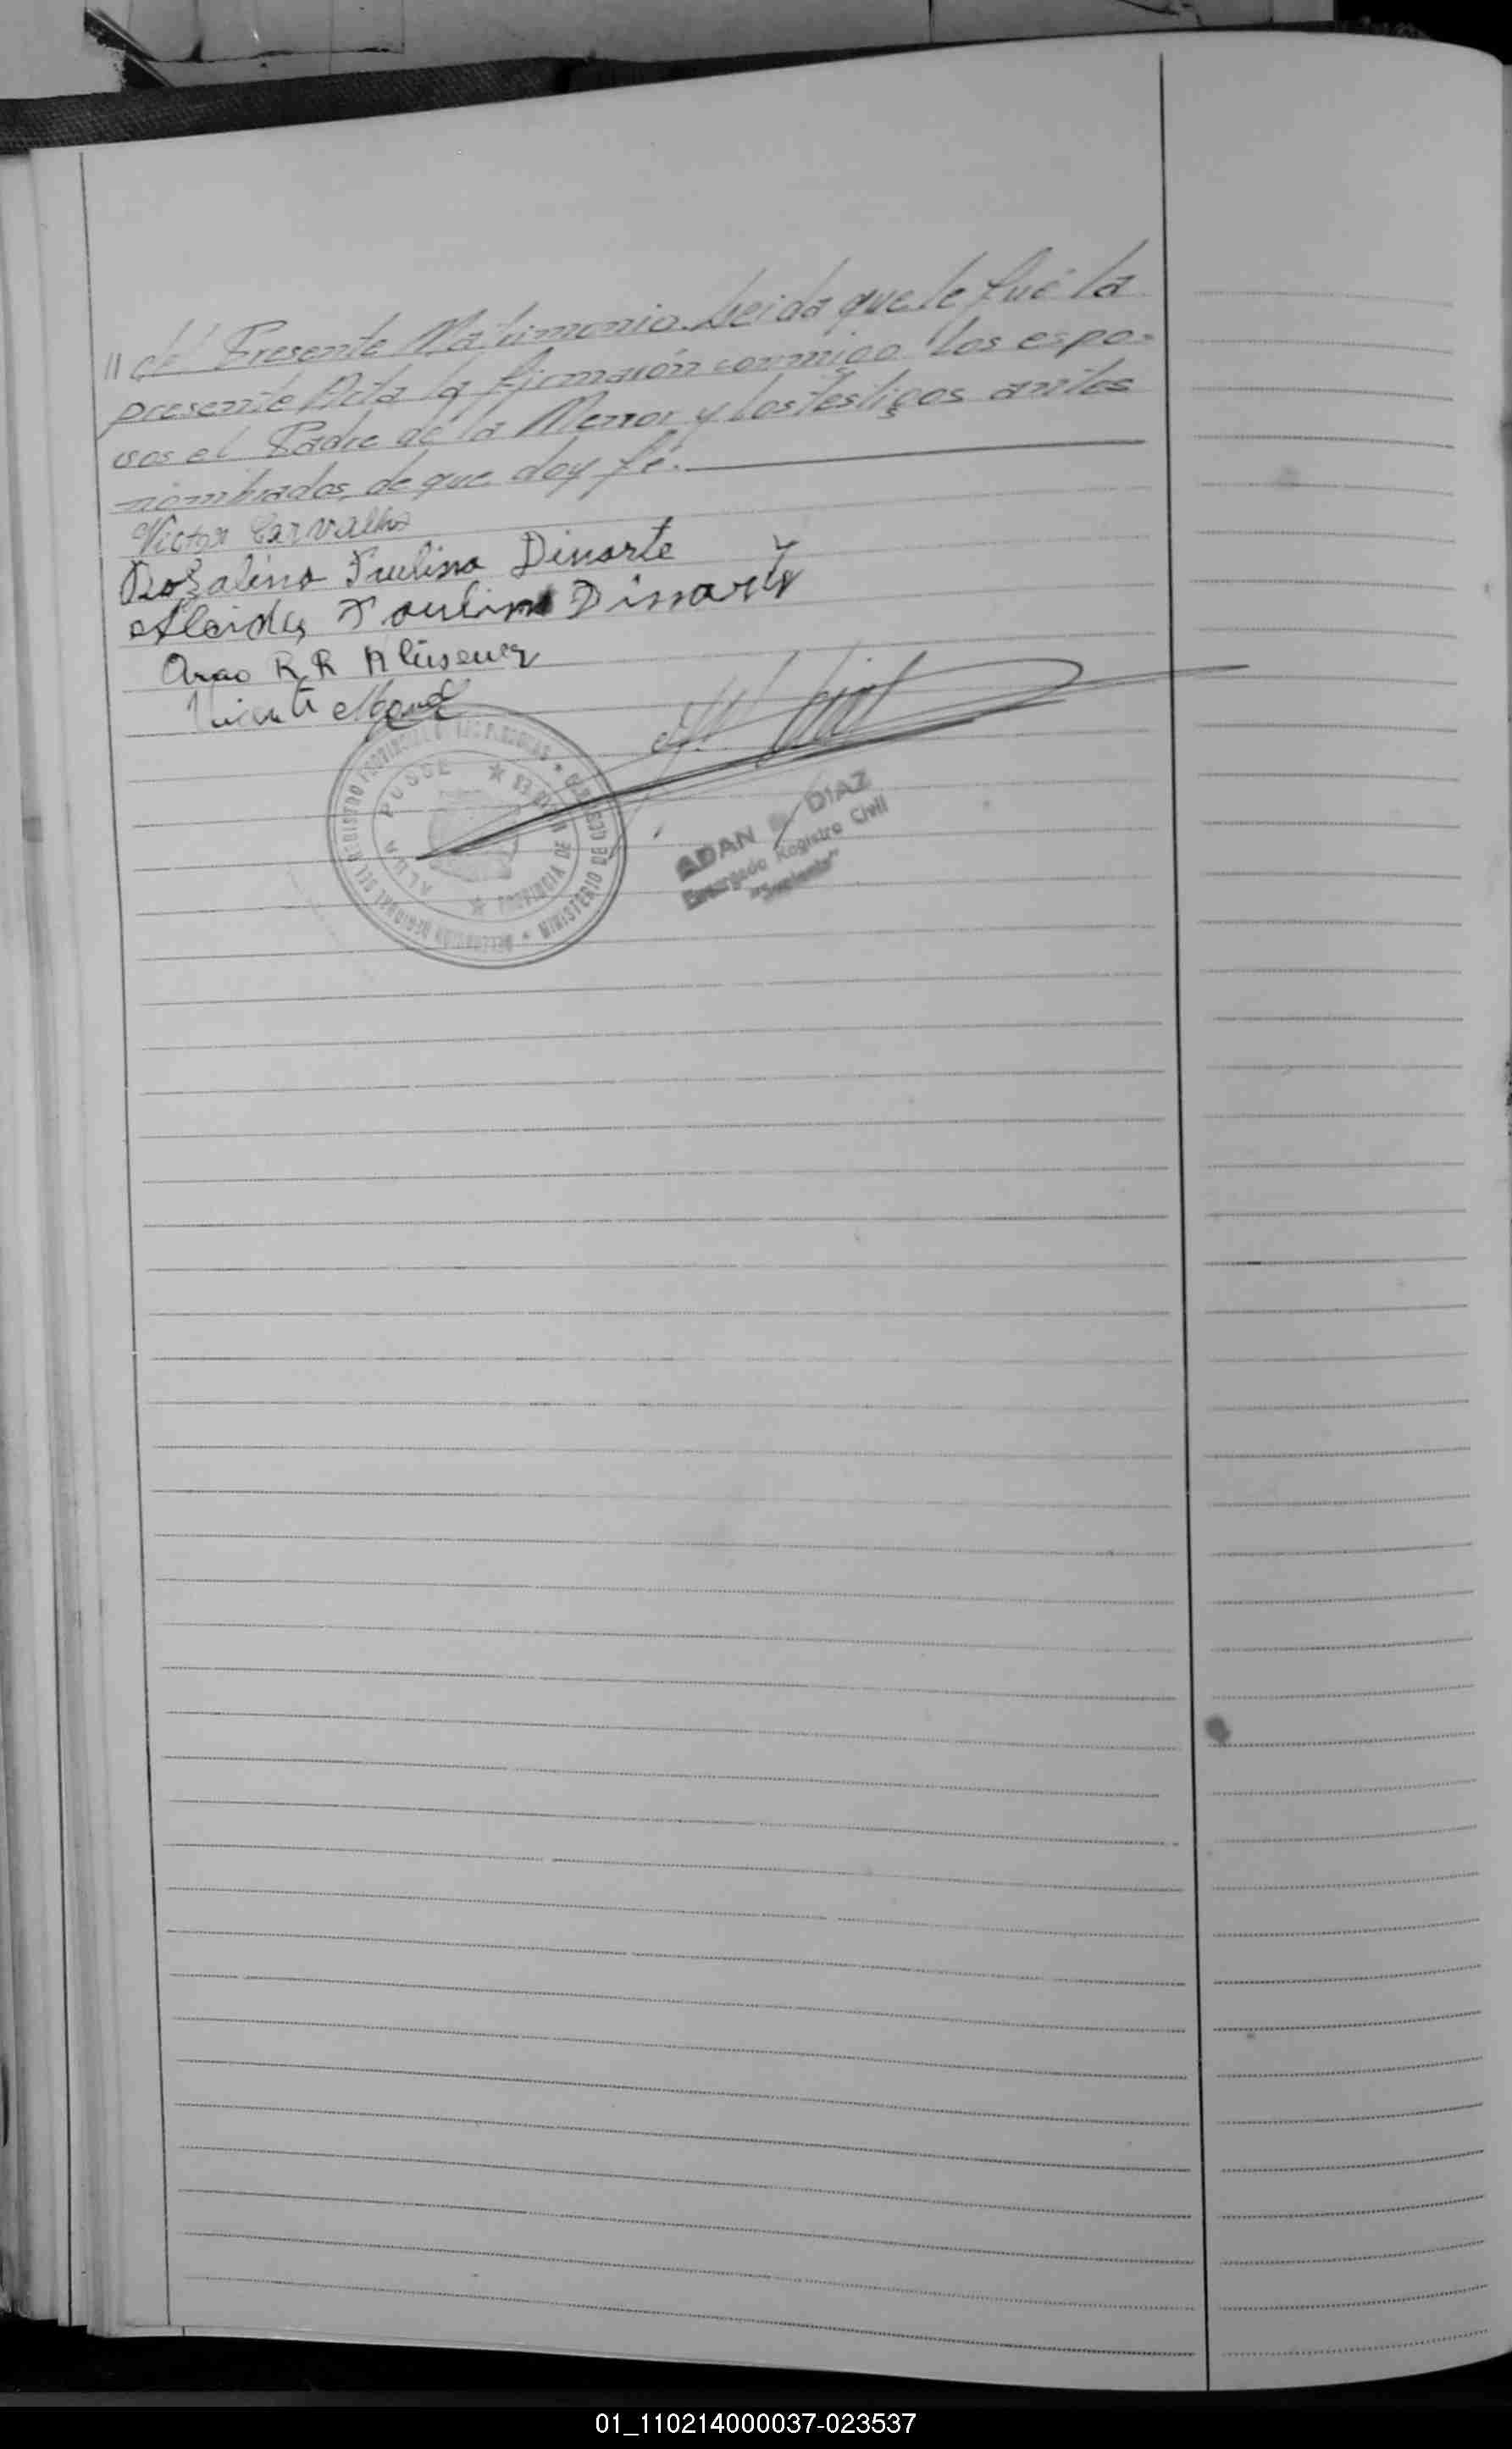 " del Presente Matrimonio. Leida que le fué la
presente Acta la firmarón conmigo los espo-
sos el Padre de la Menor y los testigos antes
nombrados, de que doy fé.
Victor Carvalho
Rozalino Paulino Dinarte
Alcides Paulino Dinarte
R R
Vicente
ADAN DIAZ
Encargado Registro Civil
"Suplente"
DEL REGISTRO PROVINCIAL DE LAS PERSONAS * MINISTERIO DE GOBIERNO
ALUA POSSE * 83 * PROVINCIA DE
01_110214000037-023537